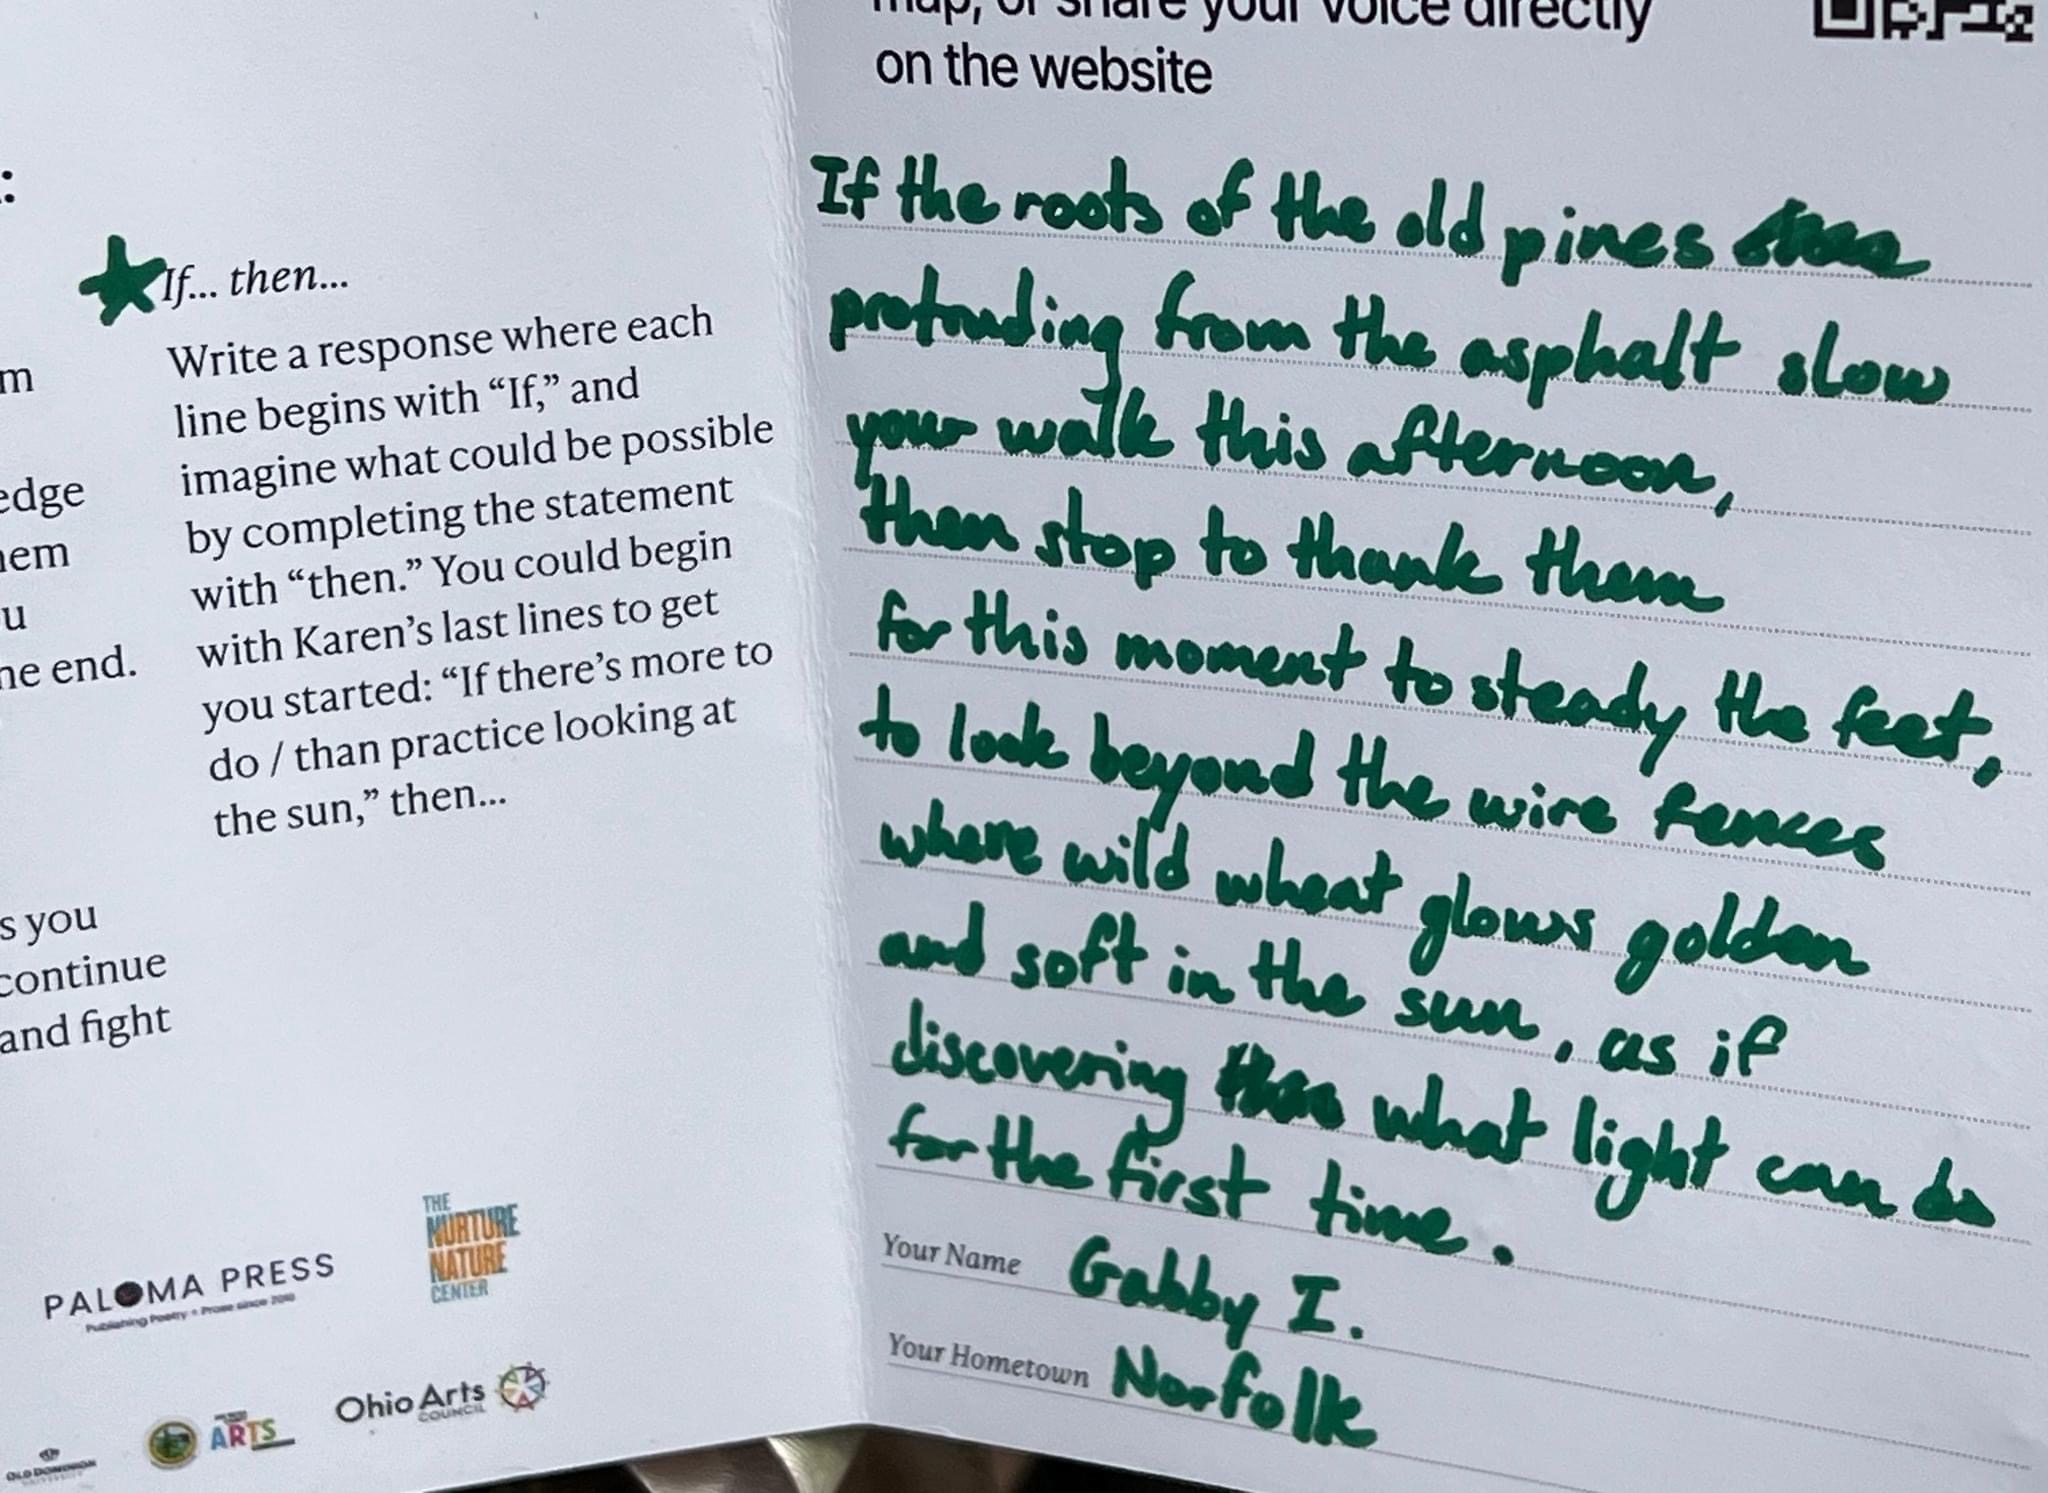 :
m
edge
hem
u
he end.
s you
continue
and fight
If... then...
Write a response where each
line begins with “If,” and
imagine what could be possible
by completing the statement
with “then.” You could begin
with Karen’s last lines to get
you started: “If there’s more to
do / than practice looking at
the sun,” then...
PALOMA PRESS
Publishing Poetry + Prose since 2016
THE
NURTURE
NATURE
CENTER
OLD DOMINION
UNIVERSITY
ARTS
Ohio Arts
COUNCIL
map, or share your voice directly
on the website
If the roots of the old pines
protruding from the asphalt slow
your walk this afternoon,
then stop to thank them
for this moment to steady the feet,
to look beyond the wire fences
where wild wheat glows golden
and soft in the sun, as if
discovering what light can do
for the first time.
Your Name Gabby I.
Your Hometown Norfolk